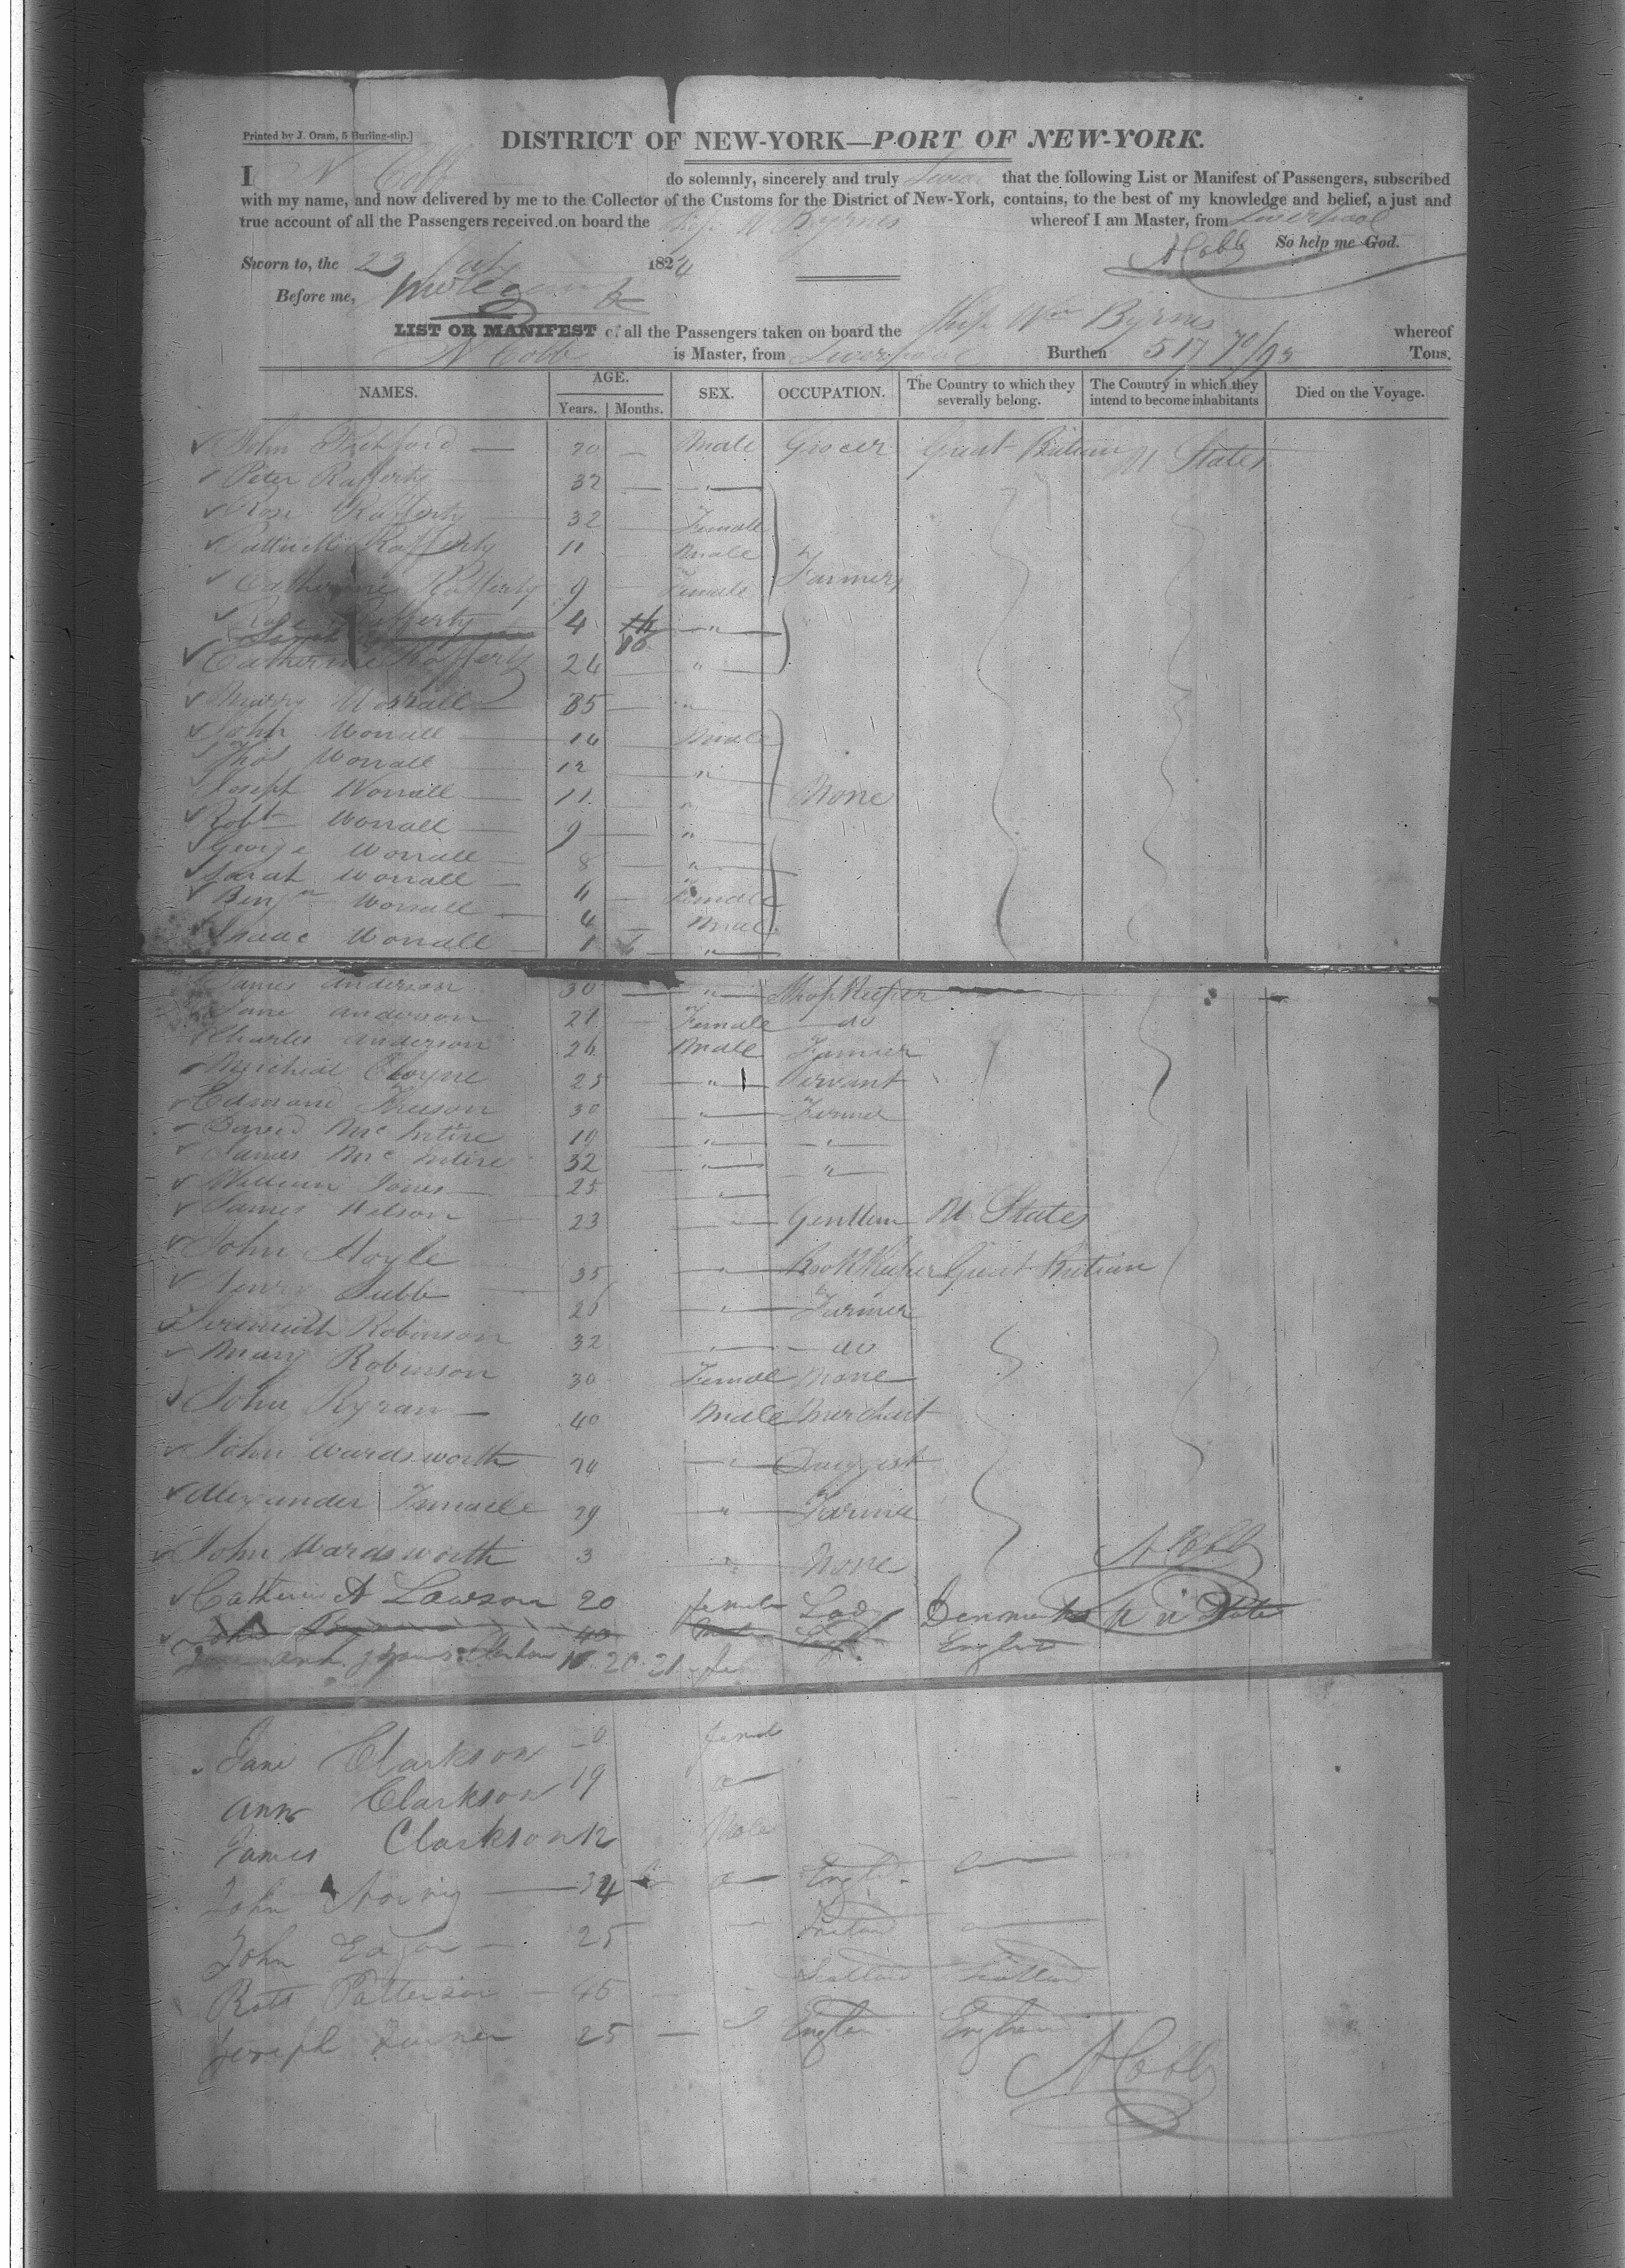 Printed by J. Oram, 5 Burling-slip.]
DISTRICT OF NEW-YORK—PORT OF NEW-YORK.
I N Cobb do solemnly, sincerely and truly Swear that the following List or Manifest of Passengers, subscribed
with my name, and now delivered by me to the Collector of the Customs for the District of New-York, contains, to the best of my knowledge and belief, a just and
true account of all the Passengers received on board the Ship W Byrnes whereof I am Master, from Liverpool
N Cobb So help me God.
Sworn to, the 23 July 1824
Before me,
LIST OR MANIFEST of all the Passengers taken on board the Ship Wm Byrnes whereof
N Cobb is Master, from Liverpool Burthen 517 70/95 Tons.
NAMES. AGE. SEX. OCCUPATION. The Country to which they severally belong. The Country in which they intend to become inhabitants Died on the Voyage.
Years. Months.
John 20 — Male Grocer Great Britian U States
Peter Rafferty 32 — "
Rose Rafferty 32 — Female
Rafferty 11 — Male
Catherine Rafferty 9 — Female Farmers
Rose Rafferty 4 "
Catherine Rafferty 24 "
Marry Worrall 35 — "
John Worrall 14 Male
Thos Worrall 12 "
Joseph Worrall 11 — " None
Robt Worrall 9 — "
George Worrall 8 — "
Sarah Worrall 6 — Female
Benjn Worrall 4 — Male
Isaac Worrall 1 "
James Anderson 30 — " Shop Keeper
Jane Anderson 21 — Female do
Charles Anderson 26 Male Farmer
Micheal Coyne 25 " Servant
Edmond 30 " Farmer
David Mc Intire 19 " "
James Mc Intire 32 " "
William Jones 25 "
James Wilson 23 " Gentlem U States
John Hoyle 35 " Book Keeper Great Britian
Henry Jubb 25 " Farmer
Jeremiah Robinson 32 " do
Mary Robinson 30 Female None
John Ryran 40 Male Merchant
John Wardsworth 24 " Druggist
Alexander 29 " Farmer
John Wardsworth 3 " None
N Cobb
Catherine A Lawson 20 female Lady
John 40
England
20 21
Jane Clarkson female
Ann Clarkson 19
James Clarkson 12 Male
John 34 Engld
John 25 Ireland
Robt Patterson 45 Scotland Scotland
Joseph Turner 25 — England England
N Cobb